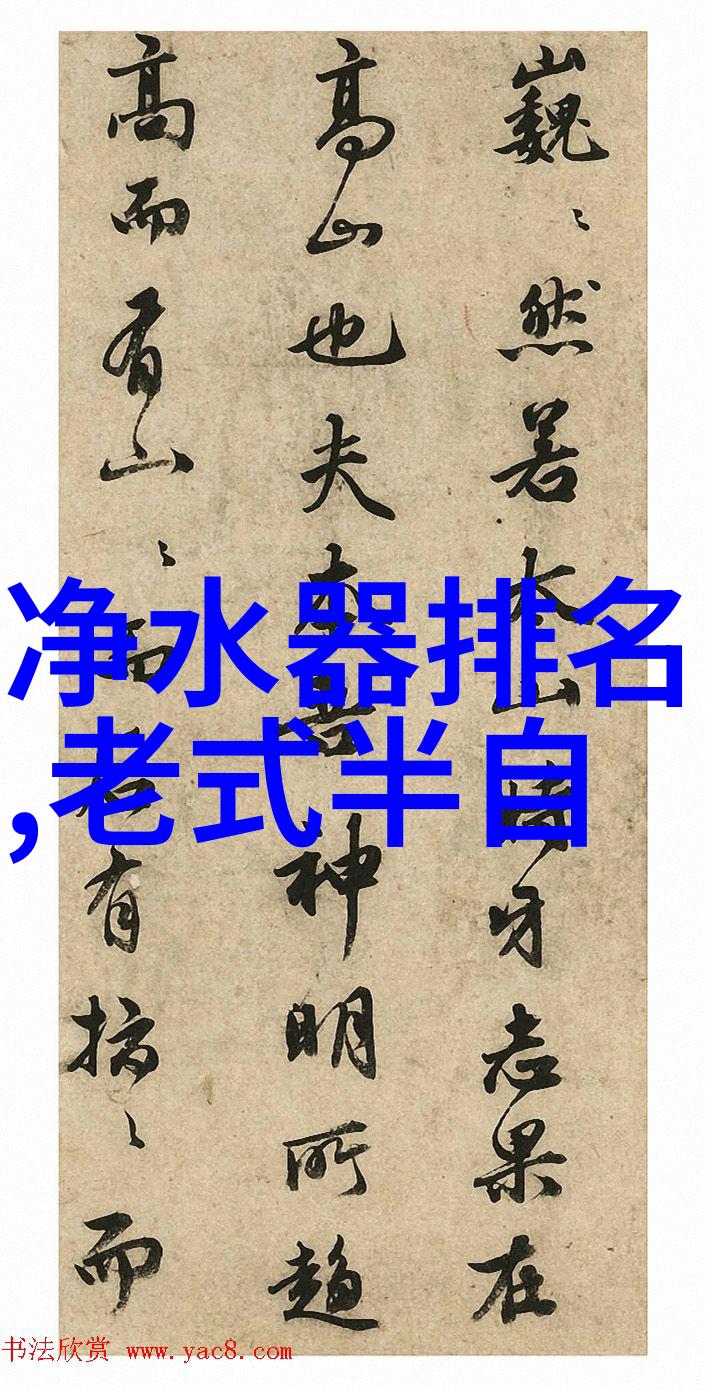 巍〻然若太山時牙志果在
高山也夫神明所趨
高而有山〻而有〻而
净水器排名
,老式半自
书法欣赏 www.yac8.com